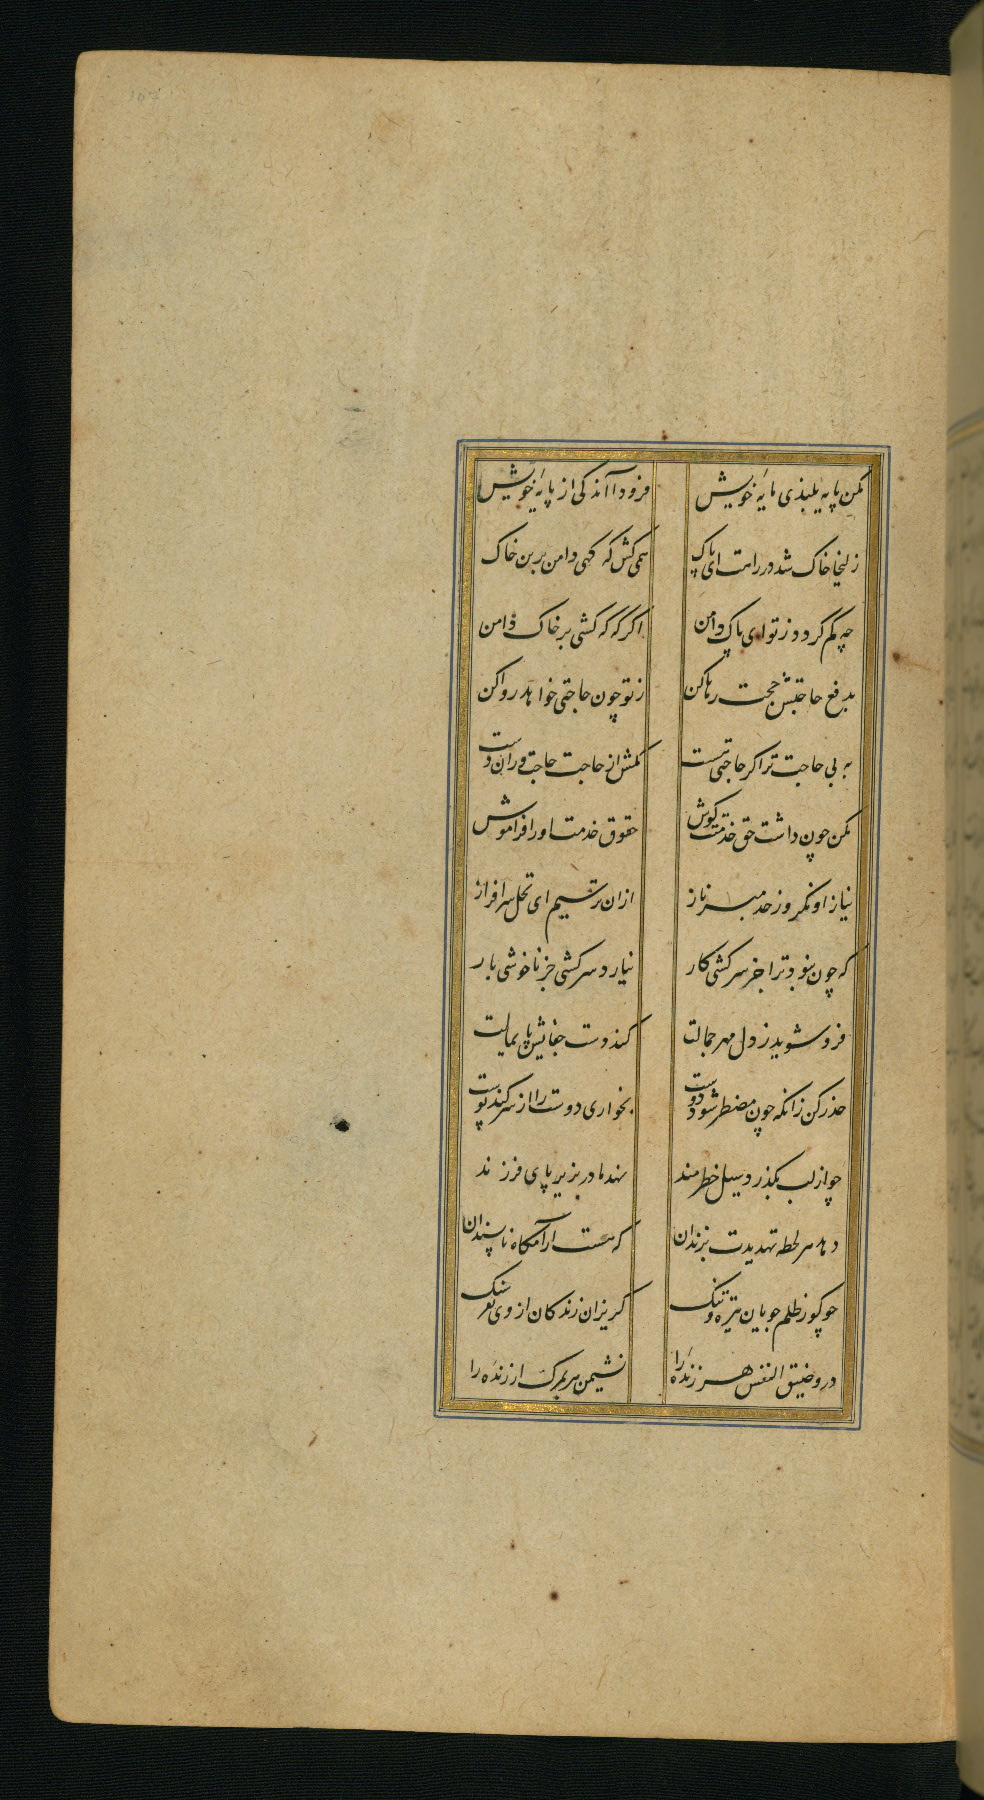 مکن پایه بلندی مایهٔ خویش    فرود آ اندکی از پایهٔ خویش
زلیخا خاک شد در راهت ای پاک    همی کش گه گهی دامن برین خاک
چه کم گردد ز تو ای پاک دامن    اکر که که کشی بر خاک دامن
بدفع حاجتش حجت رها کن    ز تو چون حاجتی خواهد روا کن
به بی حاجت ترا کر حاجتی نیست    مکش از حاجت حاجت وران دست
مکن چون داشت حق خدمت کوش    حقوق خدمت او را فراموش
نیاز او نکر وز حد مبر ناز    ازان ترسیم ای نخل سرافراز
که چون نبود ترا جز سرکشی کار    نیارد سرکشی جز ناخوشی بار
فرو شوید ز دل مهر جمالت    کند دست جفایش پایمالت
حذر کن زانکه چون مضطر شود دوست    بخواری دوست را از سر کند پوست
چو از لب بکذرد سیل خطرمند    نهد مادر بزیر پای فرزند
دهد هر لحظه تهدیدت بزندان    که هست آرامکاه ناپسندان
چو کور ظلم جویان تیره و تنک    کریزان زندکان از وی بفرسنک
درو ضیق النفس هر زنده را    نشیمن هر بمرک ارزنده را